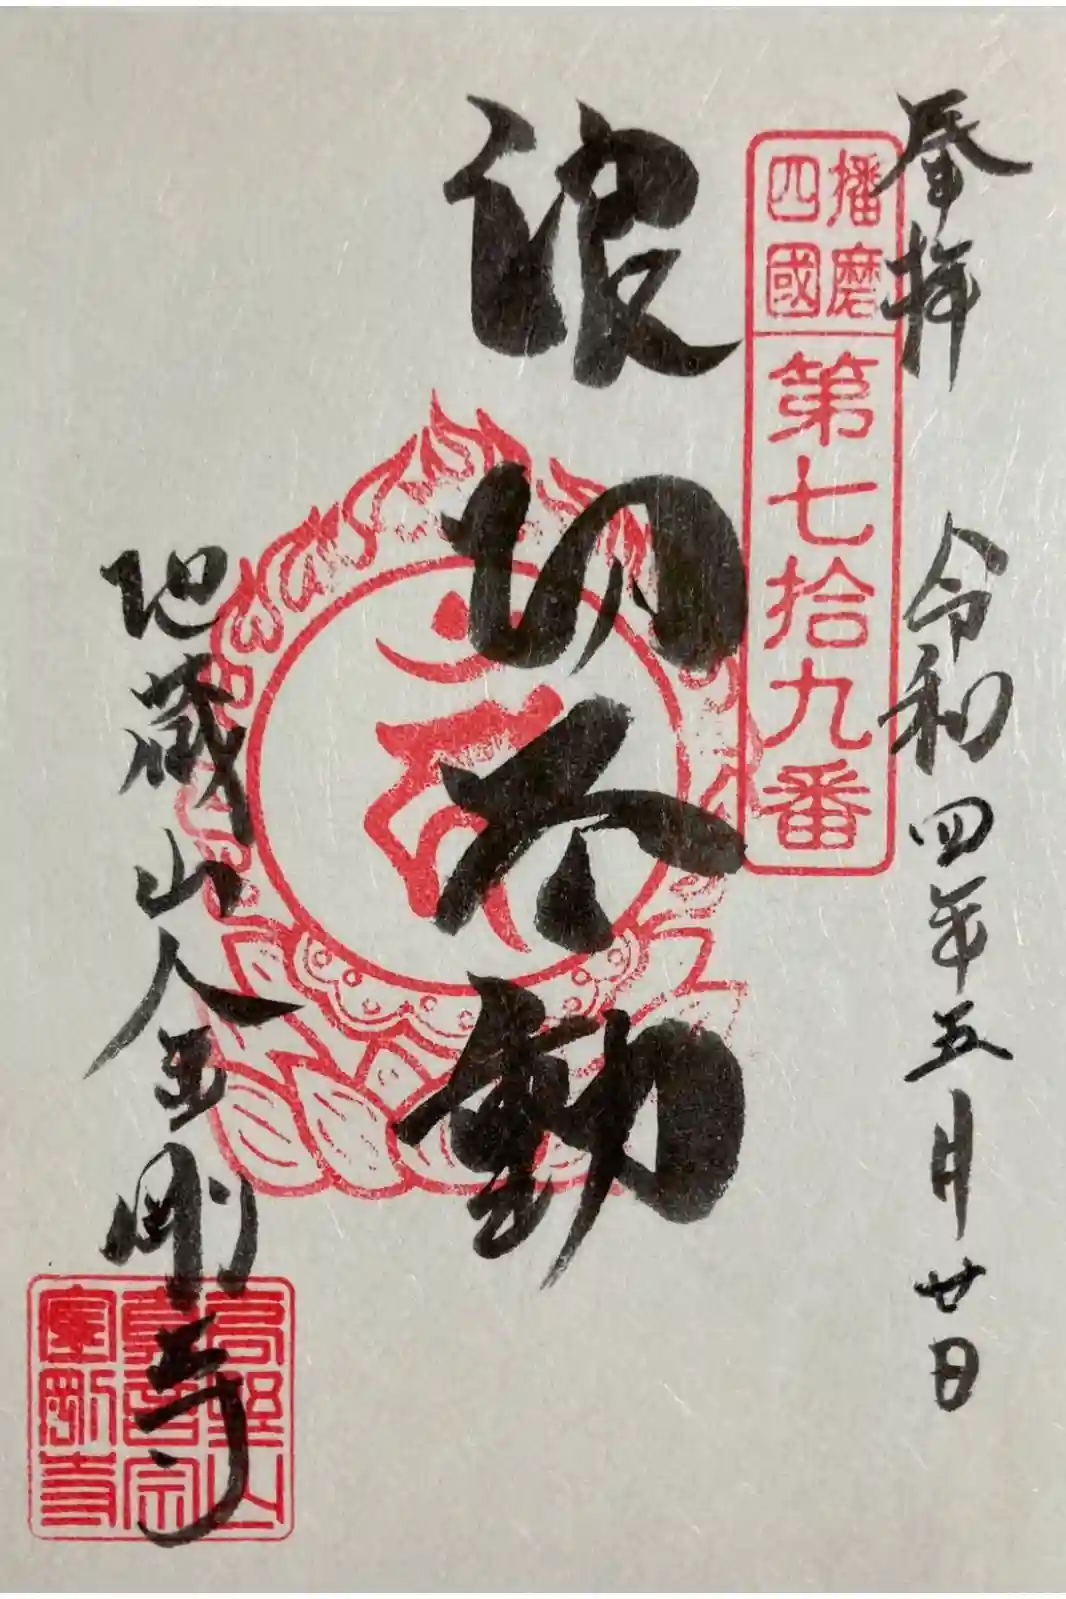 奉拝 令和四年五月廿日
播磨
四國
第七拾九番
浪切不動
地蔵山金剛寺
高野山
真言宗
金剛寺